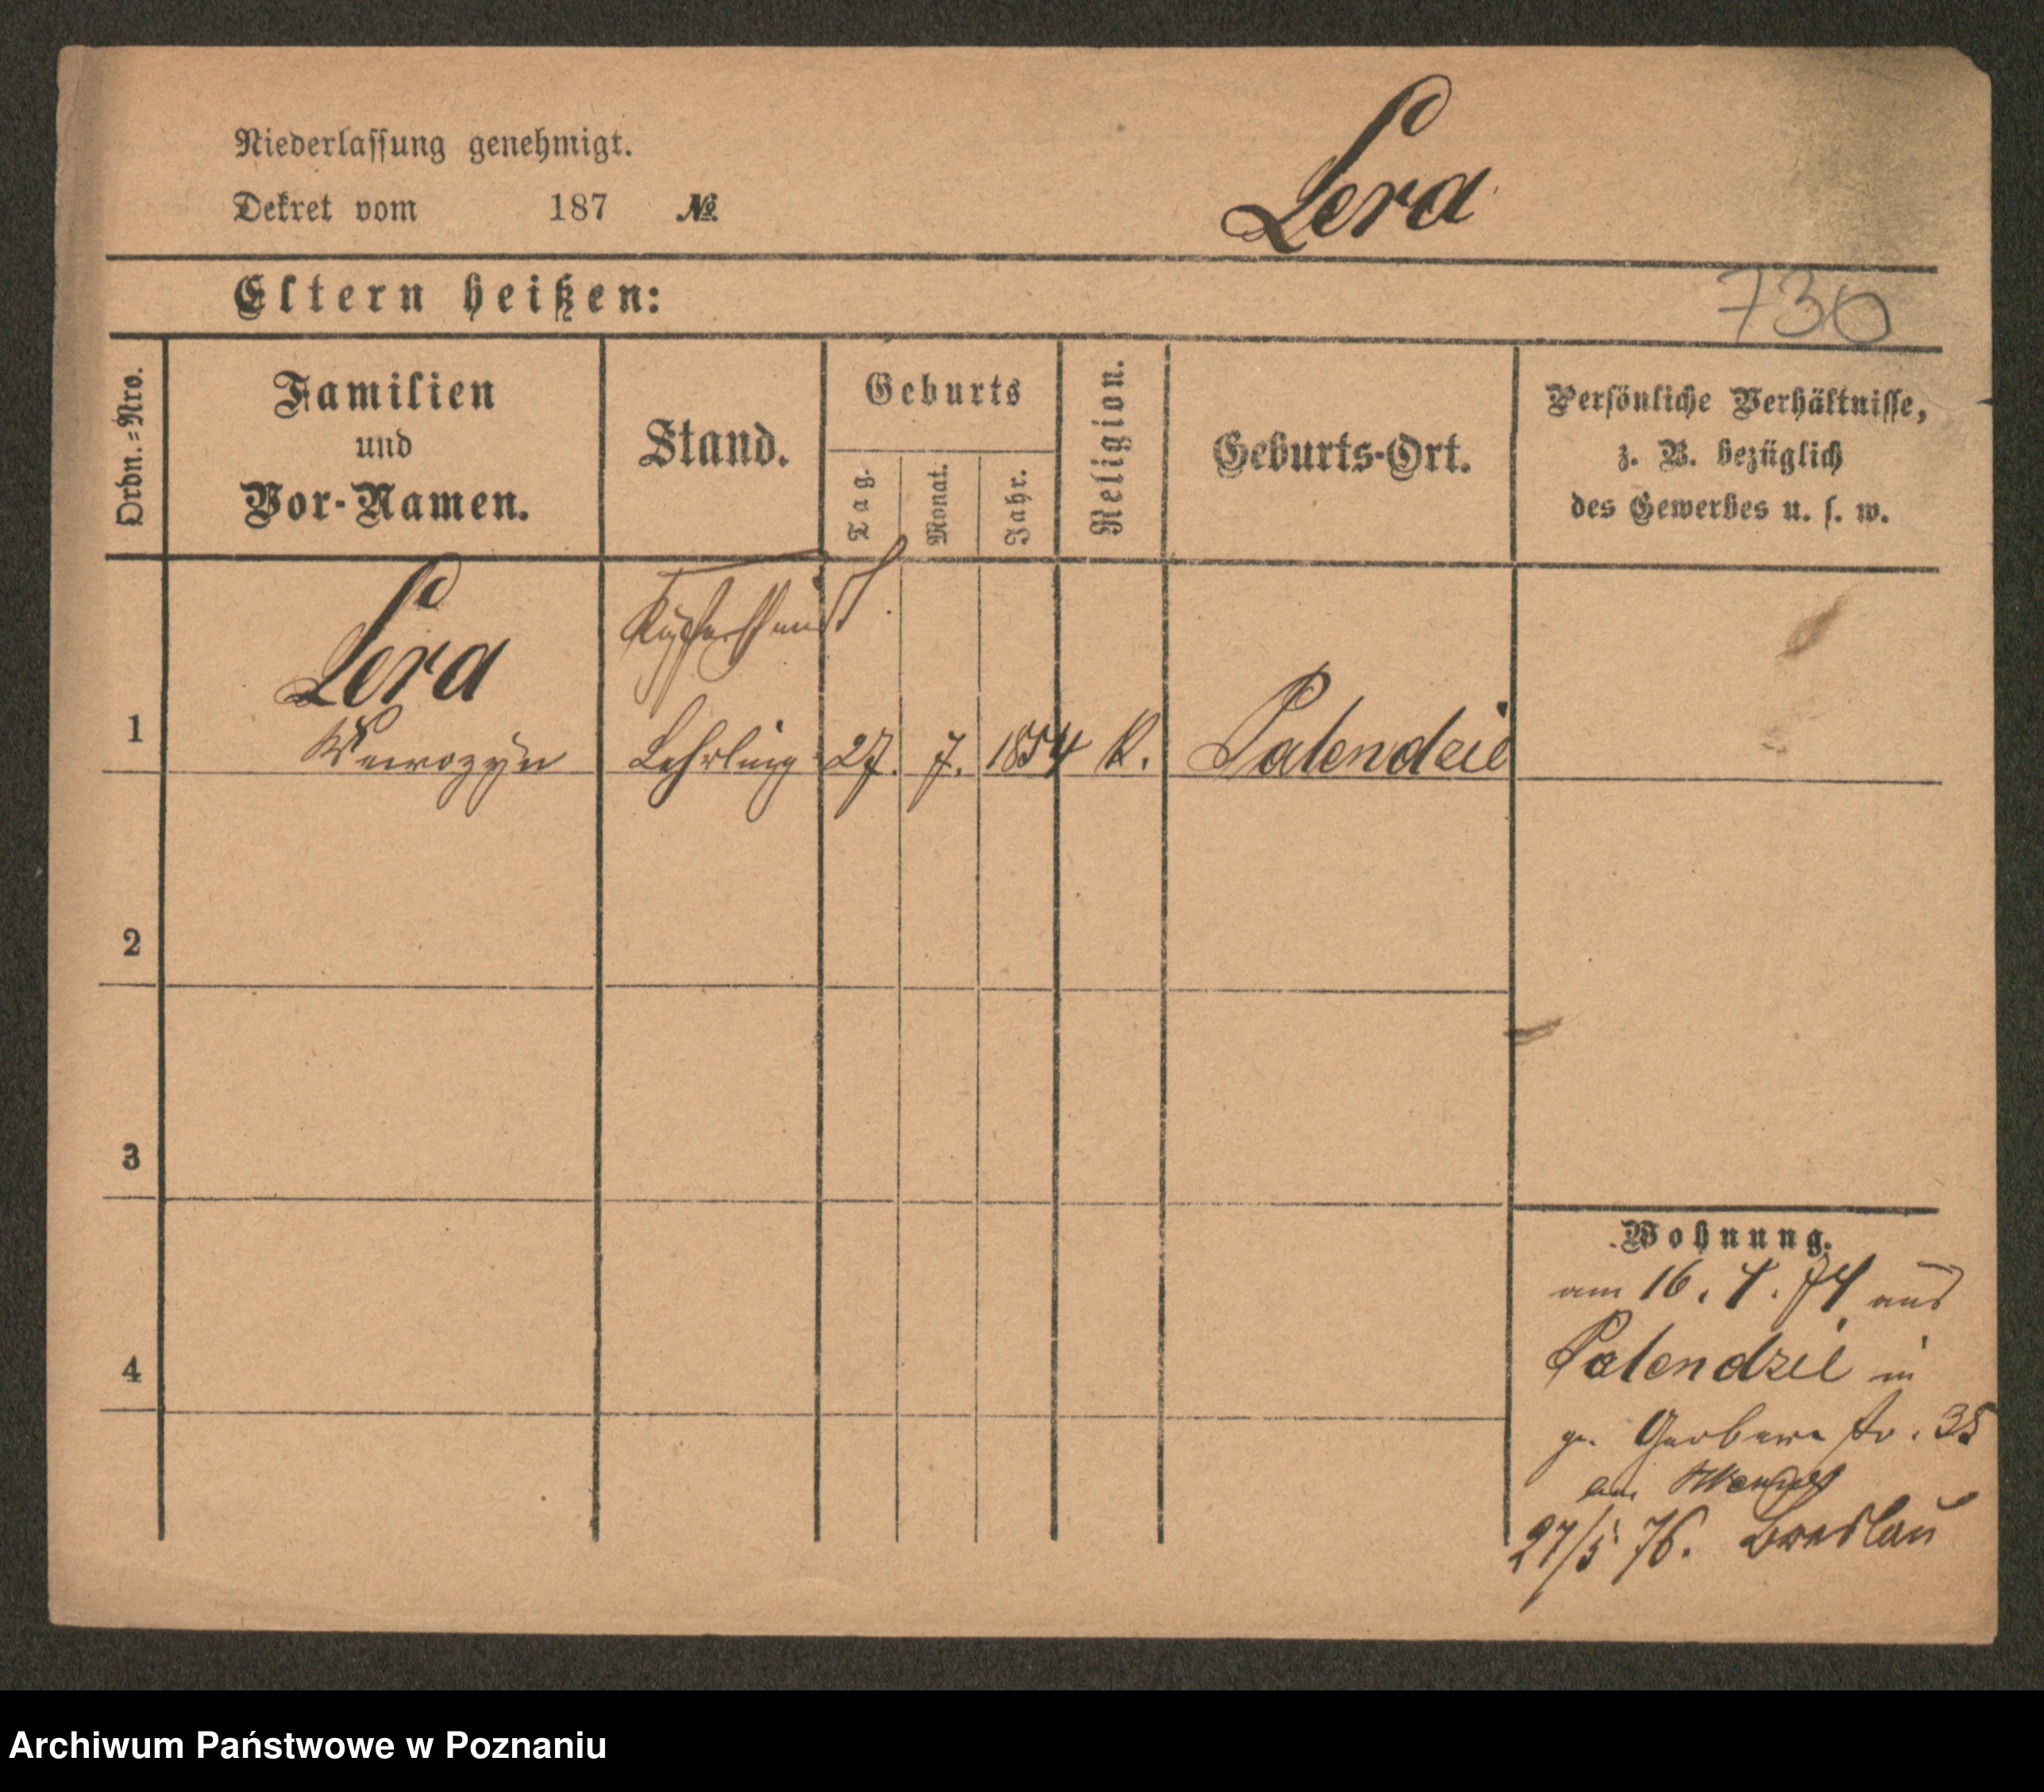 Niederlassung genehmigt.
Dekret vom 187 №
Lera
Eltern heißen:
730
Ordn.=Nro.
Familien
und
Vor-Namen.
Stand.
Geburts
Tag.
Monat.
Jahr.
Religion.
Geburts-Ort.
Persönliche Verhältnisse,
z. B. bezüglich
des Gewerbes u. s. w.
1
Lera
Wawrozyn
Kupferschmidt
Lehrling
27. 7. 1854 K. Palendzie
2
3
4
Wohnung.
am 16. 4. 74 aus
Palendzie in
gr. Gerber str. 35
27/5 76. Breslau
Archiwum Państwowe w Poznaniu